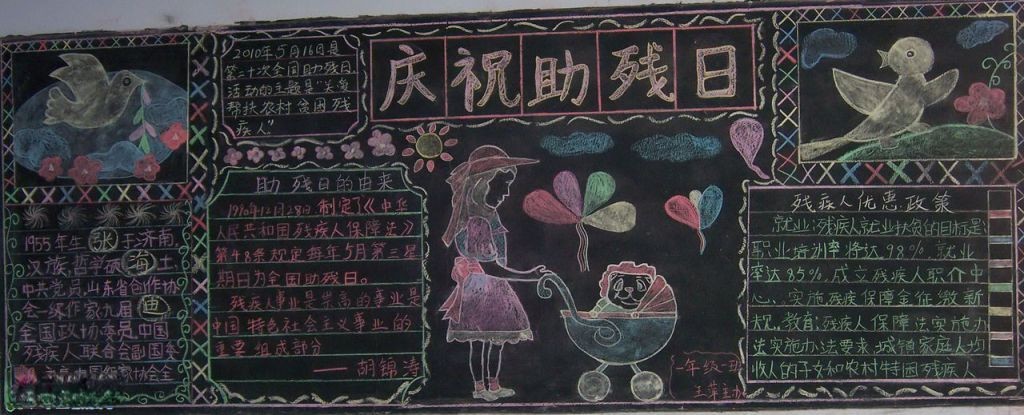 庆祝助残日
2010年5月16日是
第二十次全国助残日,
活动的主题是"关爱
帮扶农村贫困残
疾人"
1955年生 张 于济南,
汉族,哲学硕 海 士
中共党员,山东省创作协
会一级作家九届 迪
全国政协委员中国
残疾人联合会副国委
助残日的由来
1990年12月28日制定了《中华
人民共和国残疾人保障法》
第48条规定每年5月第三星
期日为全国助残日。
残疾人事业是崇高的事业是
中国特色社会主义事业的
重要组成部分
——胡锦涛
一年级一班
残疾人优惠政策
就业:残疾人就业扶贫的目标是:
职业培训率将达98%就业
率达85%.成立残疾人职介中
心、实施残疾保障金征缴新
规.教育:残疾人保障法实施办
法实施办法要求,城镇家庭人均
收入的子女和农村特困残疾人